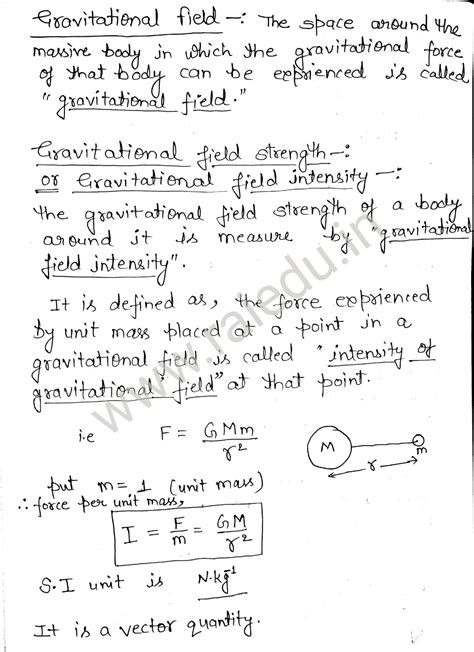 Gravitational field -: The space around the
massive body in which the gravitational force
of that body can be exprienced is called
"gravitational field."
Gravitational field strength -:
or Gravitational field intensity -:
the gravitational field strength of a body
around it is measure by "gravitational
field intensity".
It is defined as, the force exprienced
by unit mass placed at a point in a
gravitational field is called "intensity of
gravitational field" at that point.
i.e F = GMm/r²
M m
r
put m = 1 (unit mass)
∴ force per unit mass,
I = F/m = GM/r²
S.I unit is N.kg⁻¹
It is a vector quantity.
www.rajedu.in